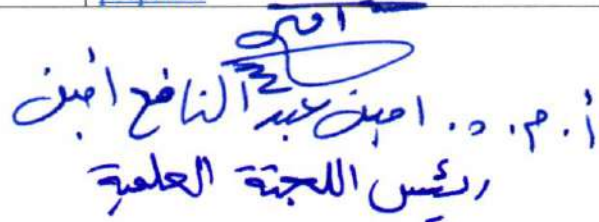 امين
أ.م.د. امين عبد النافع امين
رئيس اللجنة العلمية